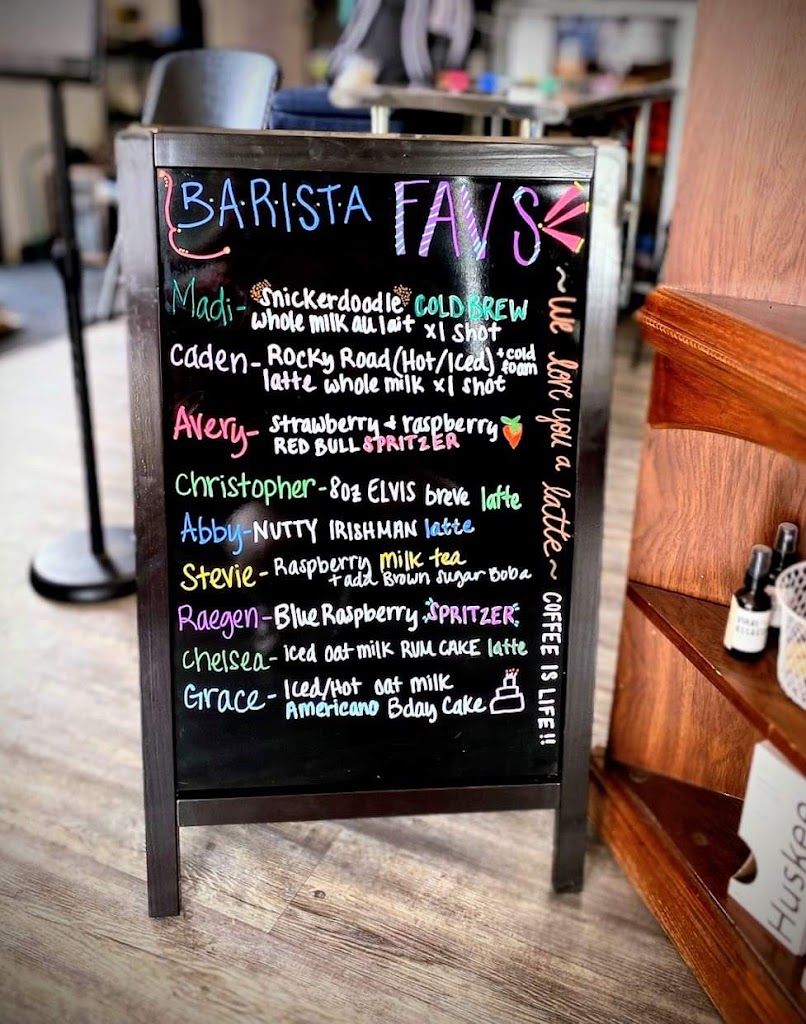 B.A.R.I.S.T.A FAVS
Madi- snickerdoodle COLD BREW
whole milk au lait x1 shot
Caden- ROCKY ROAD (Hot/Iced) + cold foam
latte whole milk x1 shot
Avery- strawberry + raspberry
RED BULL SPRITZER
Christopher- 8oz ELVIS breve latte
Abby- NUTTY IRISHMAN latte
Stevie- Raspberry milk tea
+ add Brown sugar Boba
Raegen- Blue Raspberry SPRITZER
Chelsea- Iced oat milk RUM CAKE latte
Grace- Iced/Hot oat milk
Americano Bday Cake
~ we love you a latte ~ COFFEE IS LIFE!!
Huskee